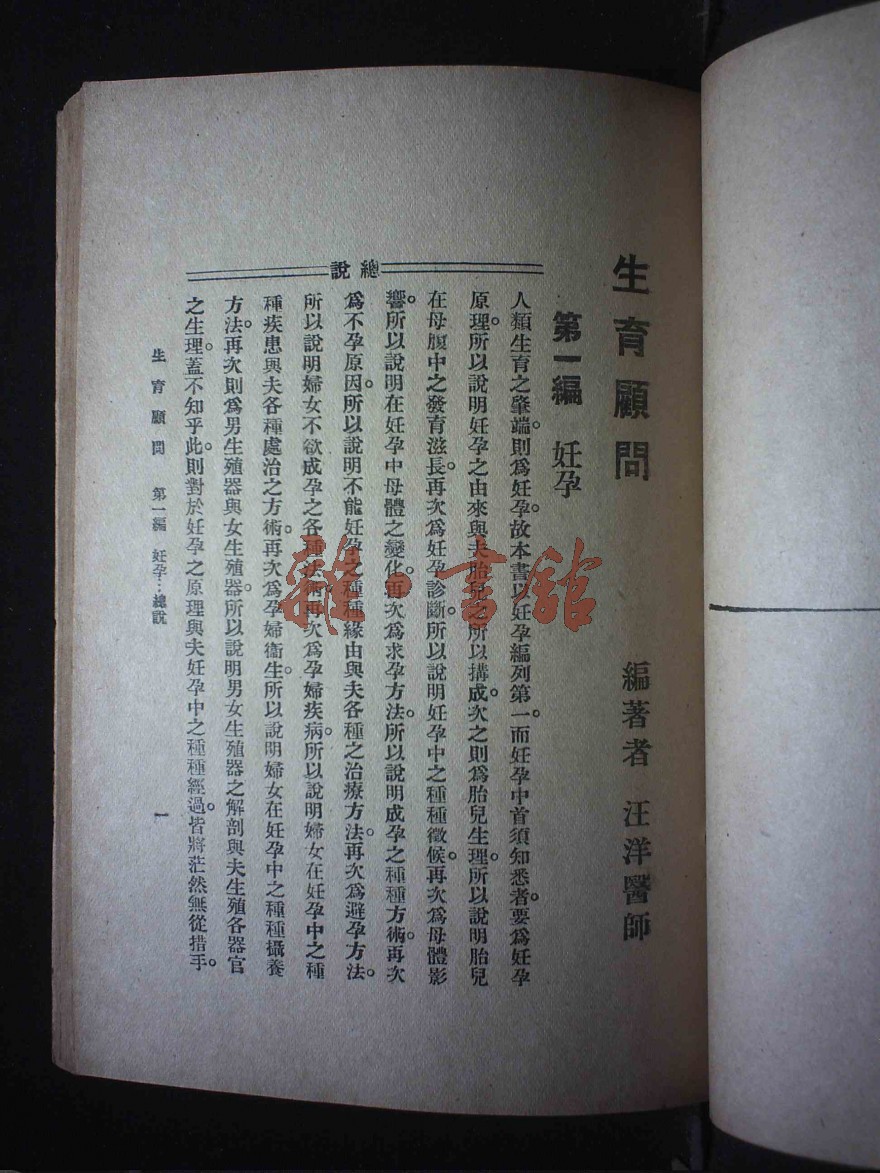 生育顧問
編著者 汪洋醫師
第一編 妊孕
總說
人類生育之肇端。則爲妊孕。故本書以妊孕編列第一。而妊孕中首須知悉者。要爲妊孕
原理。所以說明妊孕之由來與夫胎兒之所以搆成。次之則爲胎兒生理。所以說明胎兒
在母腹中之發育滋長。再次爲妊孕診斷。所以說明妊孕中之種種徵候。再次爲母體影
響。所以說明在妊孕中母體之變化。再次爲求孕方法。所以說明成孕之種種方術。再次
爲不孕原因。所以說明不能妊孕之種種緣由與夫各種之治療方法。再次爲避孕方法。
所以說明婦女不欲成孕之各種法術。再次爲孕婦疾病。所以說明婦女在妊孕中之種
種疾患與夫各種處治之方術。再次爲孕婦衞生。所以說明婦女在妊孕中之種種攝養
方法。再次則爲男生殖器與女生殖器。所以說明男女生殖器之解剖與夫生殖各器官
之生理。蓋不知乎此。則對於妊孕之原理與夫妊孕中之種種經過。皆將茫然無從措手。
生育顧問 第一編 妊孕：總說
一
雜·書館